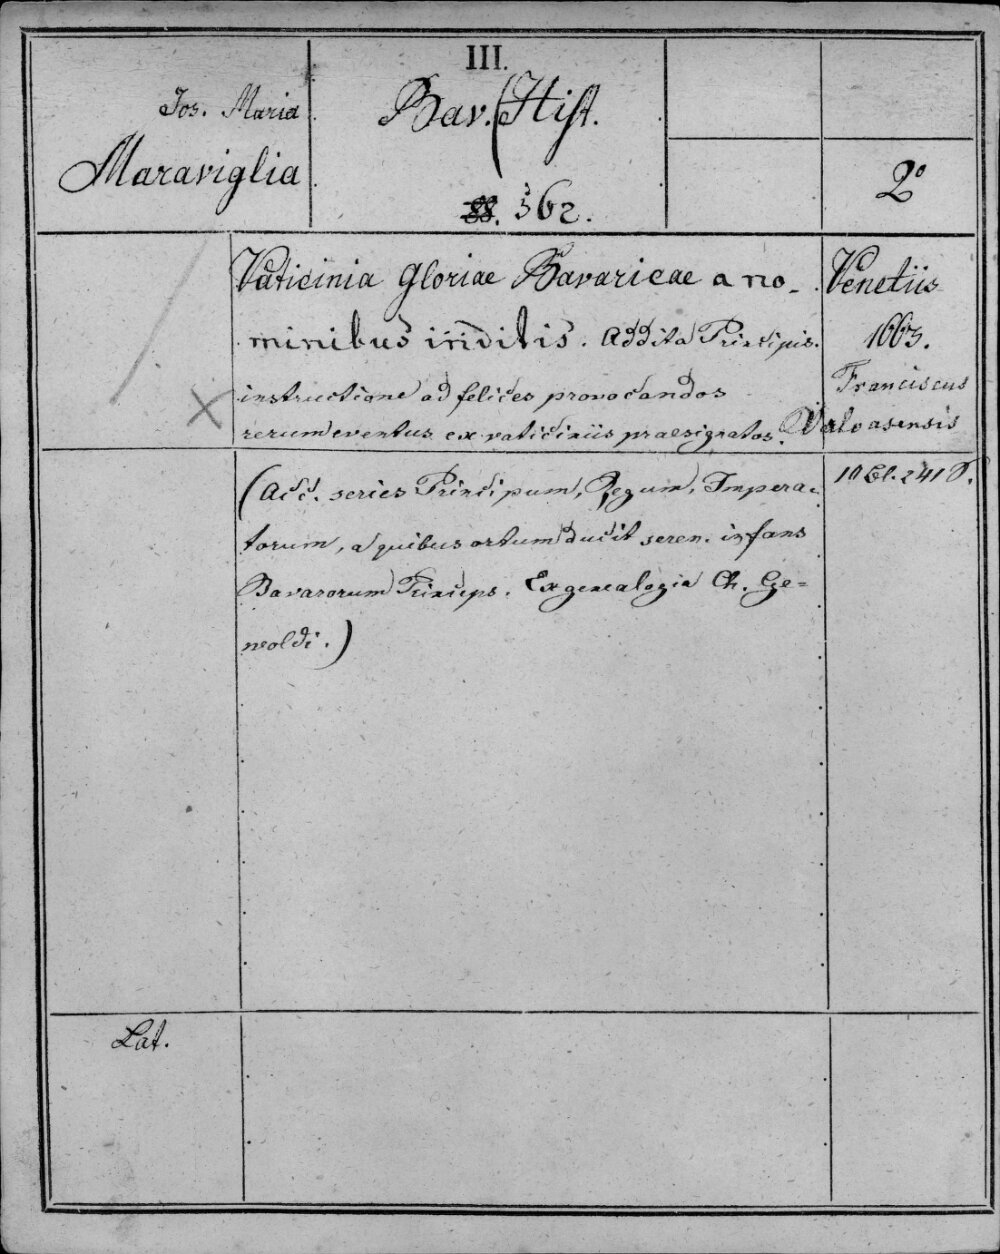 III.
Jos. Maria
Maraviglia
Bav. (Hist.
562.
2º
Vaticinia Gloriae Bavaricae a no-
minibus inditis. Addita Principis
instructione ad felices provocandos
rerum eventus ex vaticiniis praesignatos.
Venetiis
1663.
Franciscus
Valvasensis
(Acc. series Principum, Regum, Impera-
torum, a quibus ortum ducit seren. infans
Bavarorum Princeps. Ex genealogia Ch. Ge-
woldi.)
10 Bl. 241 S.
Lat.